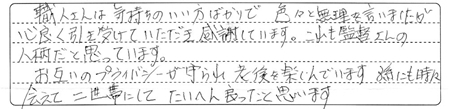 職人さんは気持ちのいい方ばかりで 色々と無理を言いましたが
心良く引き受けていただき感謝しています。これも監督さんの
人柄だと思っています。
お互いのプライバシーが守られ、老後を楽しんでいます。孫にも時々
会えて二世帯にして たいへん良ったと思います